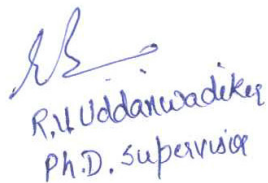 R.V Uddanwadiker
Ph.D. Supervisor